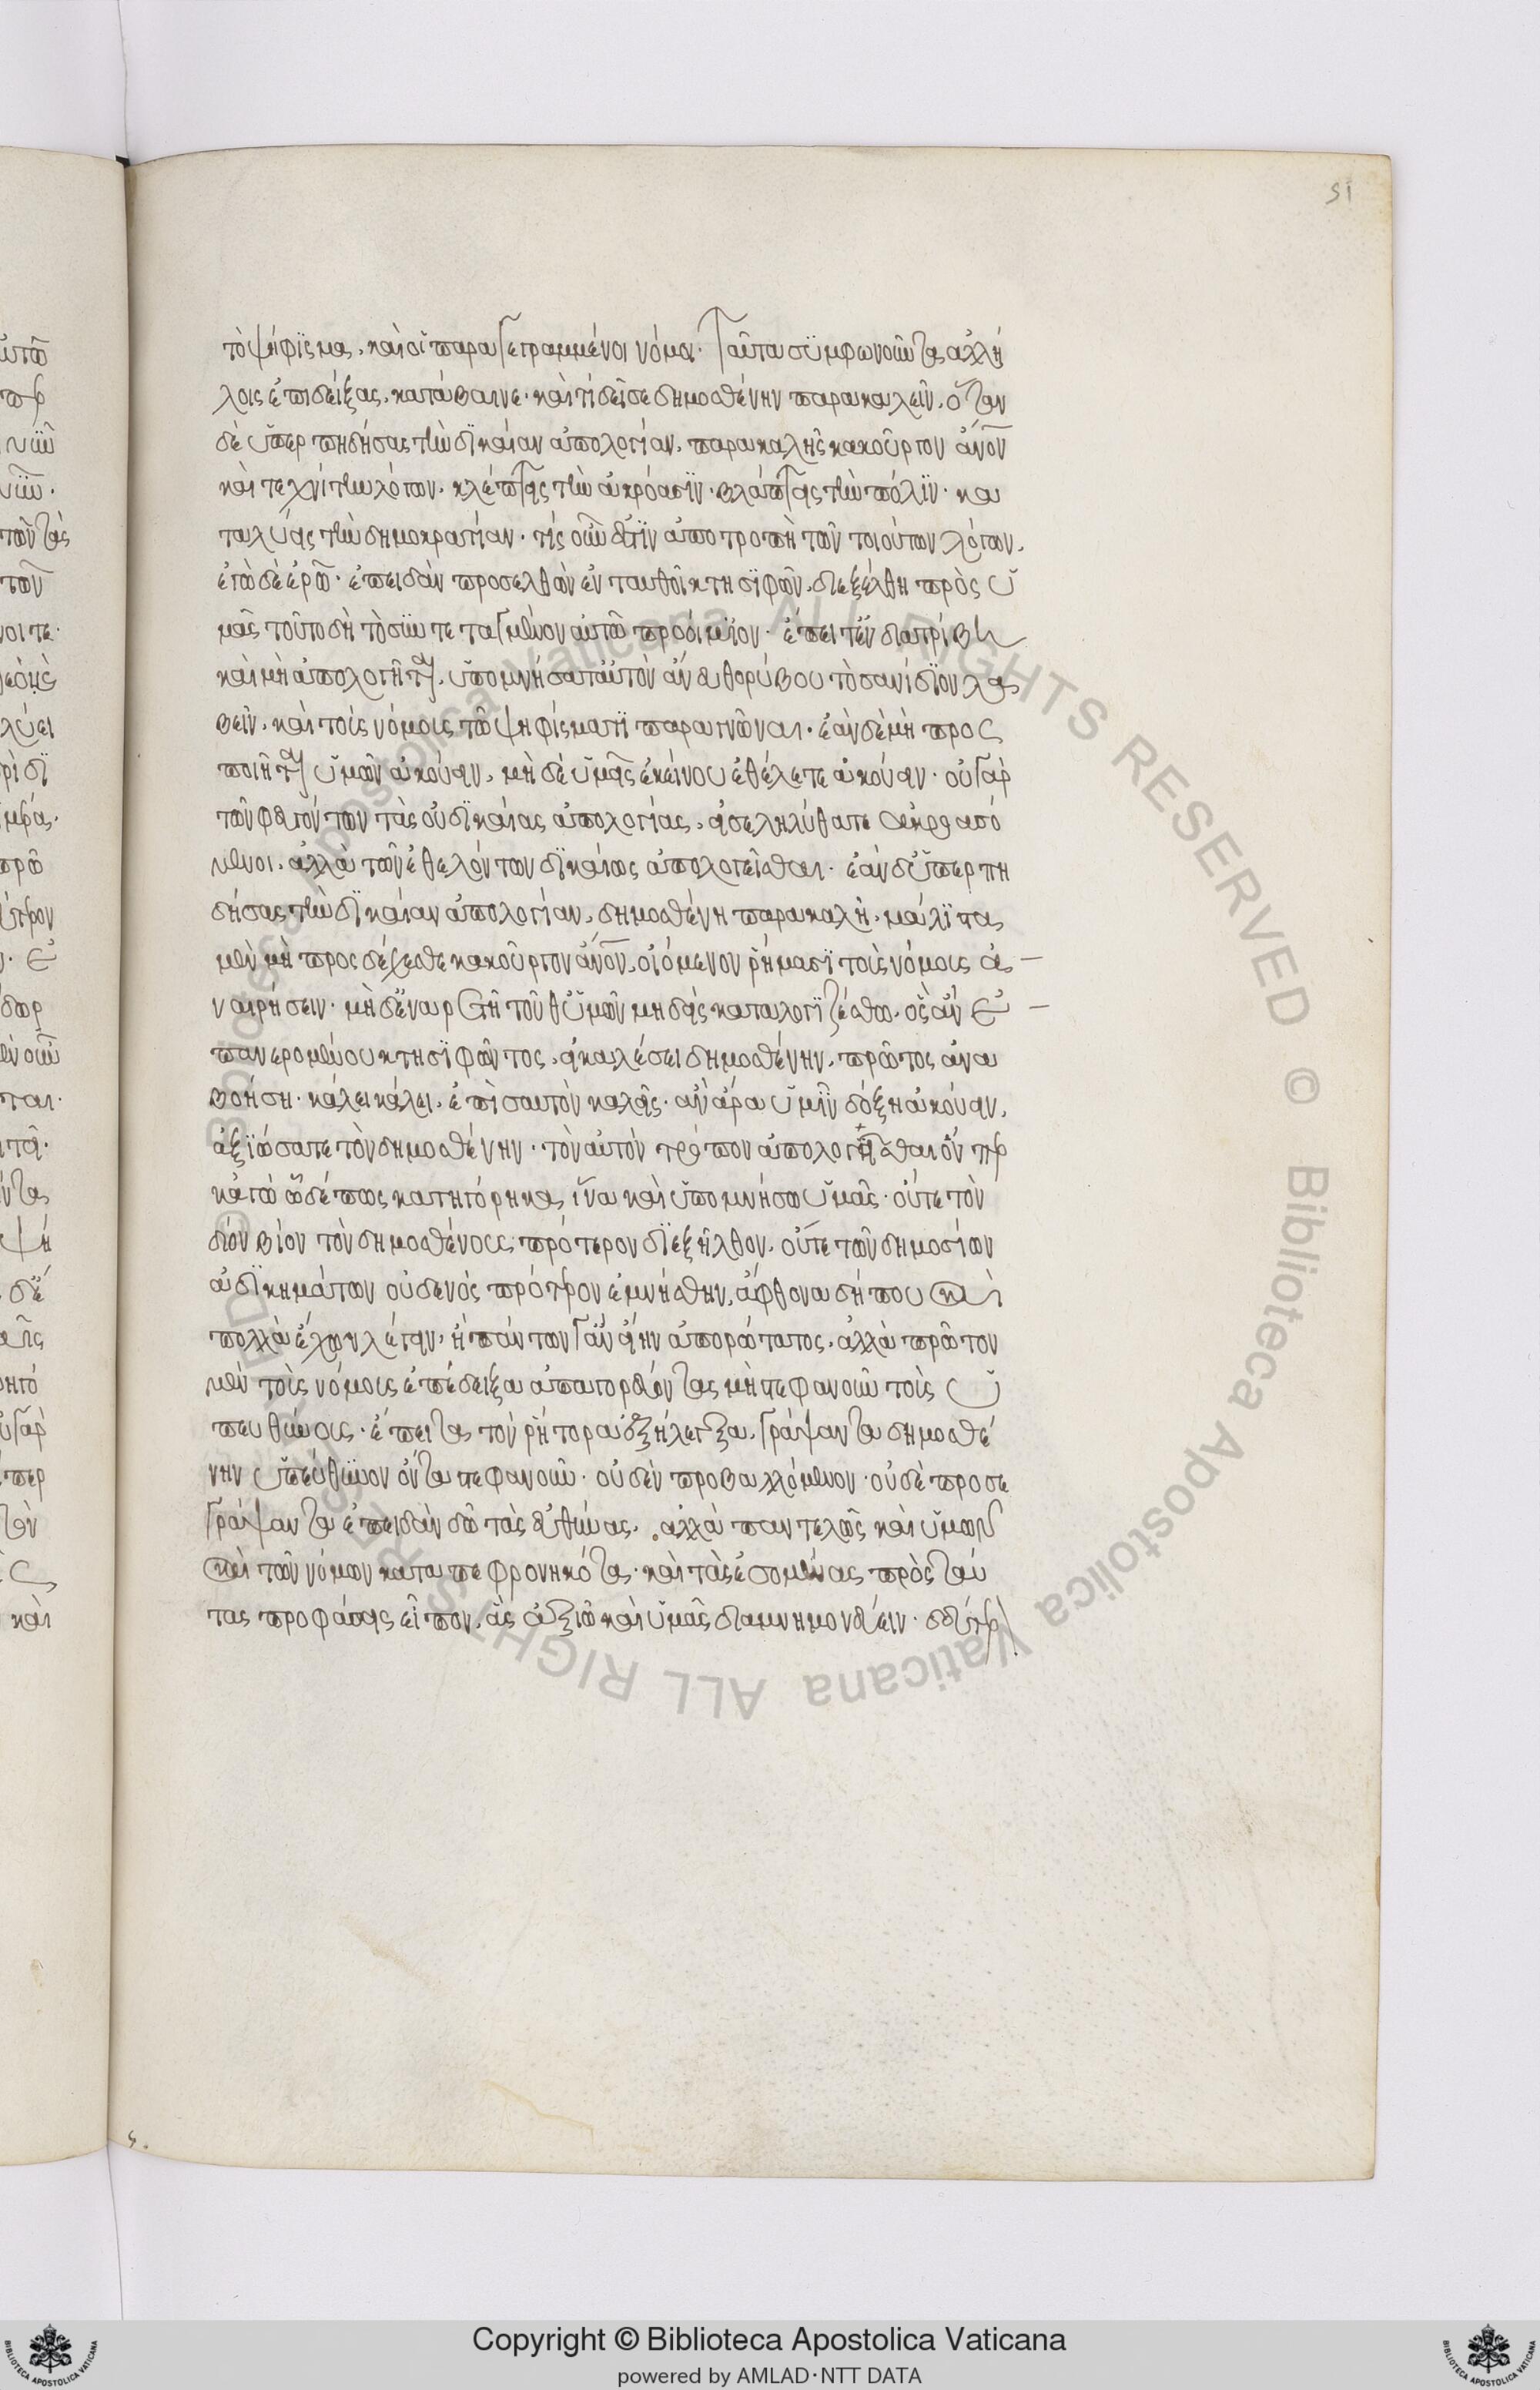 51
τὸ ψήφϊσμα, καὶ οἱ παραγεγραμμένοι νόμοι. Ταῦτα συμφωνοῦντα ἀλλή
λοις ἐπιδείξας, κατάβαινε. καὶ τί δεῖ σε δημοσθένην παρακαλεῖν. ὅταν
δὲ ὑπερπηδήσας τὴν δϊκαίαν ἀπολογίαν, παρακαλῆς κακοῦργον ἄνον
καὶ τεχνίτην λόγων, κλέπτεις τὴν ἀκρόασϊν. βλάπτεις τὴν πόλϊν. κα
ταλύεις τὴν δημοκρατίαν. τίς οὖν ἐστϊν ἀποτροπὴ τῶν τοιούτων λόγων,
ἐγὼ δὲ ἐρῶ. ἐπειδὰν προσελθὼν ἐνταυθοῖ κτησϊφῶν, διεξέλθη πρὸς ὑ
μᾶς τοῦτο δὴ τὸ συντεταγμένον αὐτῶ προοίμϊον. ἔπειτ' ἐνδιατρίβη
καὶ μὴ ἀπολογῆται, ὑπομνήσατ' αὐτὸν ἄνευ θορύβου τὸ σανίδϊον λα
βεῖν, καὶ τοὺς νόμους τῶ ψηφίσματϊ παραγνῶναι. ἐὰν δὲ μὴ προσ
ποιῆται ὑμῶν ἀκούειν, μὴ δὲ ὑμεῖς ἐκείνου ἐθέλετε ἀκούειν. οὐ γὰρ
τῶν φευγόντων τὰς οὐ δϊκαίας ἀπολογίας, εἰσεληλύθατε ἀκροασό
μενοι. ἀλλὰ τῶν ἐθελόντων δϊκαίως ἀπολογεῖσθαι. ἐὰν δ' ὑπερπη
δήσας τὴν δϊκαίαν ἀπολογίαν, δημοσθένη παρακαλῆ, μάλϊστα
μὲν μὴ προσδέχεσθε κακοῦργον ἄνον, οἰόμενον ῥήμασϊ τοὺς νόμους ἀ
ναιρήσειν. μὴ δ' ἐν ἀρετῆ τοῦθ' ὑμῶν μηδεὶς καταλογϊζέσθω, ὃς ἂν ἐ
πανερομένου κτησϊφῶντος, εἰ καλέσει δημοσθένην, πρῶτος ἀνα
βοήση. κάλει κάλει. ἐπὶ σαυτὸν καλεῖς. ἂν ἄρα ὑμῖν δόξη ἀκούειν,
ἀξϊώσατε τὸν δημοσθένην. τὸν αὐτὸν τρόπον ἀπολογεῖσθαι ὅν περ
κἀγὼ ὧδέ πως κατηγόρηκα, ἵνα καὶ ὑπομνήσω ὑμᾶς. οὔτε τὸν
ϊδϊον βίον τὸν δημοσθένους πρότερον δϊεξῆλθον, οὔτε τῶν δημοσίων
ἀδϊκημάτων οὐδενὸς πρότερον ἐμνήσθην, ἄφθονα δήπου καὶ
πολλὰ ἔχων λέγειν, ἢ πάντων γ' ἂν εἴην ἀπορώτατος, ἀλλὰ πρῶτον
μὲν τοὺς νόμους ἐπέδειξα ἀπαγορεύοντας μὴ στεφανοῦν τοὺς ὑ
πευθύνους. ἔπειτα τὸν ῥήτορα ἐξήλεγξα, γράψαντα δημοσθέ
νην ὑπεύθυνον ὄντα στεφανοῦν. οὐδὲν προβαλλόμενον. οὐδὲ προσε
γράψαντα ἐπειδὰν δῶ τὰς εὐθύνας, ἀλλὰ παντελῶς καὶ ὑμῶν
καὶ τῶν νόμων καταπεφρονηκότα. καὶ τὰς ἐσομένας πρὸς ταύ
τας προφάσεις εἶπον, ἃς ἀξιῶ καὶ ὑμᾶς διαμνημονεύειν. δεύτερ
Copyright © Biblioteca Apostolica Vaticana
powered by AMLAD·NTT DATA